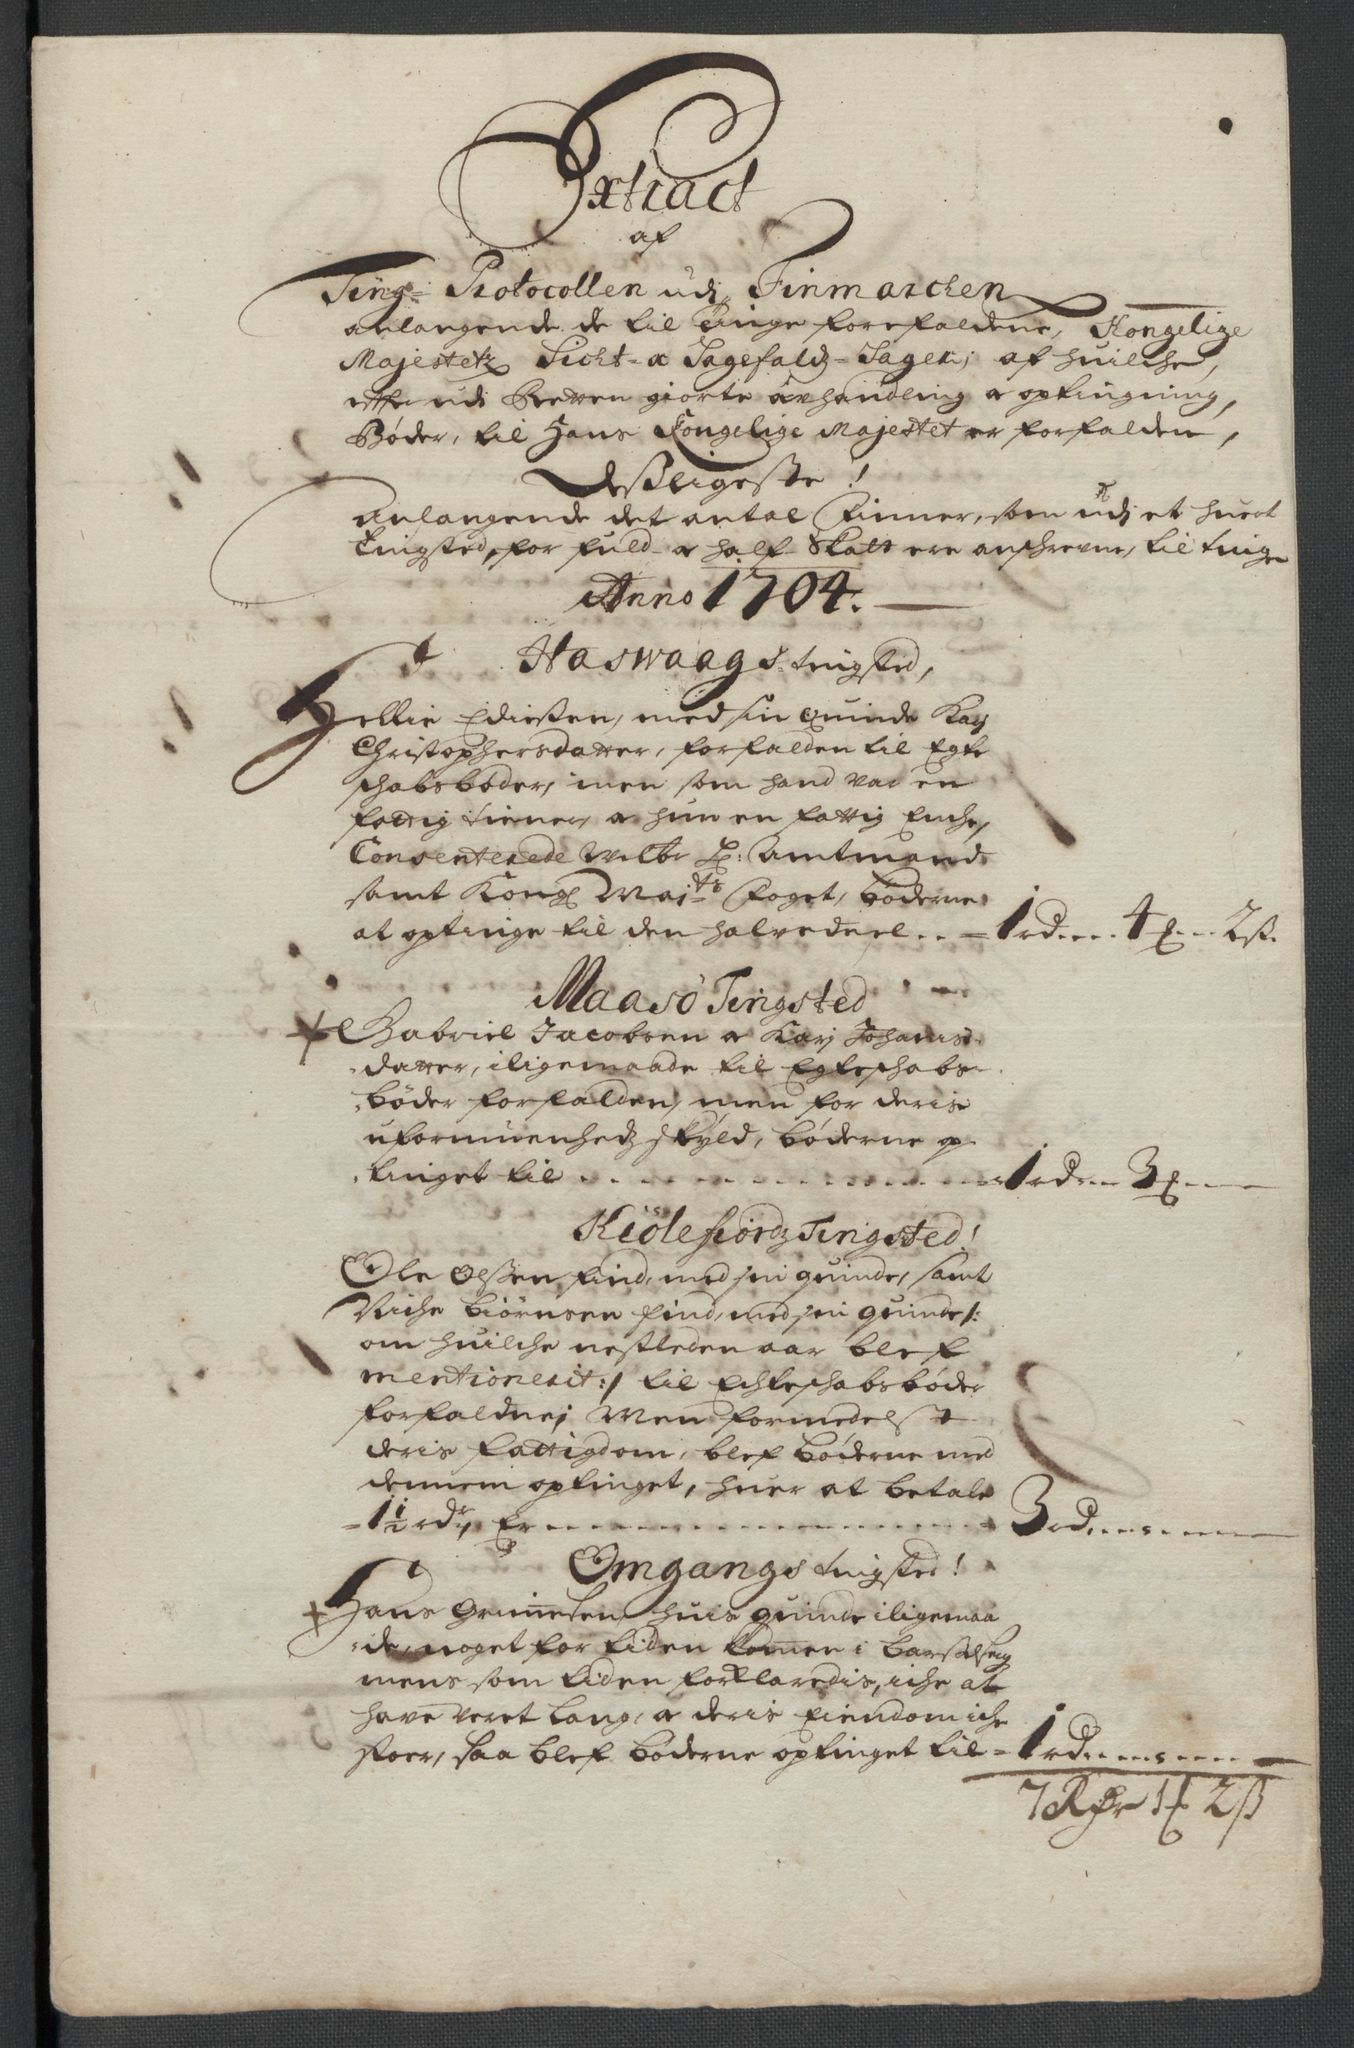 Extract
af
Ting- Protocollen udi Finmarchen
anlangende de til Tinge forefaldene, Kongelige
Majestetz Sicht- a Sagefaldz- Sager; af huilche,
efter udi Retten giorte afhandling a opfingning,
Bøder, til Hans Kongelige Majestet er forfalden,
Desligeste!
anlangende det antal Finner, som udi et huert
Tingsted, for fuld- a half- Skatt ere anschrevne, til tinge
Anno 1704.
Haswaags tingsted,
Hellie Ediesen, med sin quinde Karj
Christophersdatter, forfalden til Egte
schabsbøder, men som hand var en
fattig tiener, a hun en fattig Enche,
Consenterede Welbr Hr: Amtmand
samt Kongl Maj:ts Foget, bøderne
at opfinge til den halvedeel .. = 1 rd... 4 ... 2 s.
Maasø Tingsted
Gabriel Jacobsen a Karj Johanis-
datter, iligemaade til Egteschabs-
bøder forfalden, men for deris
uformuenhedz skyld, bøderne op-
finget til ........ = 1 rd... 3 ...
Kiølefiordz Tingsted!
Ole Olssen find, med sin quinde, samt
Niche Biørnsen find, med sin quinde /:
om huilche nestleden aar blef
mentionerit :/ til Echteschabsbøder
forfaldne; Men formedelst
deris fattigdom, blef bøderne med
dennem opfinget, huer at betale
= 1 1/2 rdr, Er ........ 3 rd...
Omgangs tingsted!
Hans Grunnesen huis quinde iligemaa
de, noget for tiden kommen i barselseng
mens som tiden forklaredis, iche at
have veret lang, a deris Eiendom iche
stoer, saa blef bøderne opfinget til = 1 rd...
7 Rdr 1 2 ß